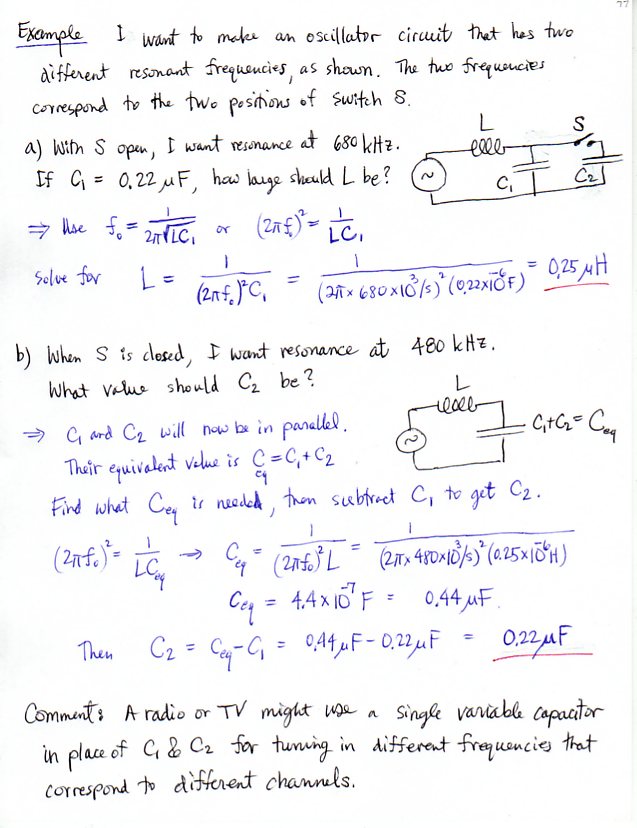 77
Example I want to make an oscillator circuit that has two
different resonant frequencies, as shown. The two frequencies
correspond to the two positions of switch S.
a) With S open, I want resonance at 680 kHz.
If C₁ = 0.22 μF, how large should L be?
L S
~ C₁ C₂
⇒ Use f₀ = 1/(2π√LC₁) or (2πf₀)² = 1/LC₁
Solve for L = 1/((2πf₀)²C₁) = 1/((2π×680×10³/s)²(0.22×10⁻⁶F)) = 0.25 μH
b) When S is closed, I want resonance at 480 kHz.
What value should C₂ be?
L
~ C₁+C₂ = Ceq
⇒ C₁ and C₂ will now be in parallel.
Their equivalent value is Ceq = C₁+C₂
Find what Ceq is needed, then subtract C₁ to get C₂.
(2πf₀)² = 1/LCeq → Ceq = 1/((2πf₀)²L) = 1/((2π×480×10³/s)²(0.25×10⁻⁶H))
Ceq = 4.4×10⁻⁷ F = 0.44 μF.
Then C₂ = Ceq-C₁ = 0.44 μF - 0.22 μF = 0.22 μF
Comment: A radio or TV might use a single variable capacitor
in place of C₁ & C₂ for tunning in different frequencies that
correspond to different channels.